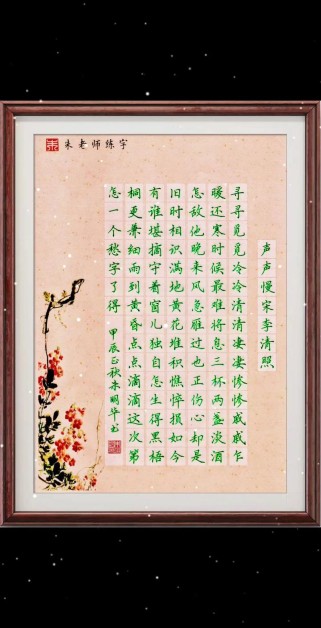 朱老师练字
声声慢宋李清照
寻寻觅觅冷冷清清凄凄惨惨戚戚乍
暖还寒时候最难将息三杯两盏淡酒
怎敌他晚来风急雁过也正伤心却是
旧时相识满地黄花堆积憔悴损如今
有谁堪摘守着窗儿独自怎生得黑梧
桐更兼细雨到黄昏点点滴滴这次第
怎一个愁字了得 甲辰正秋朱明华书